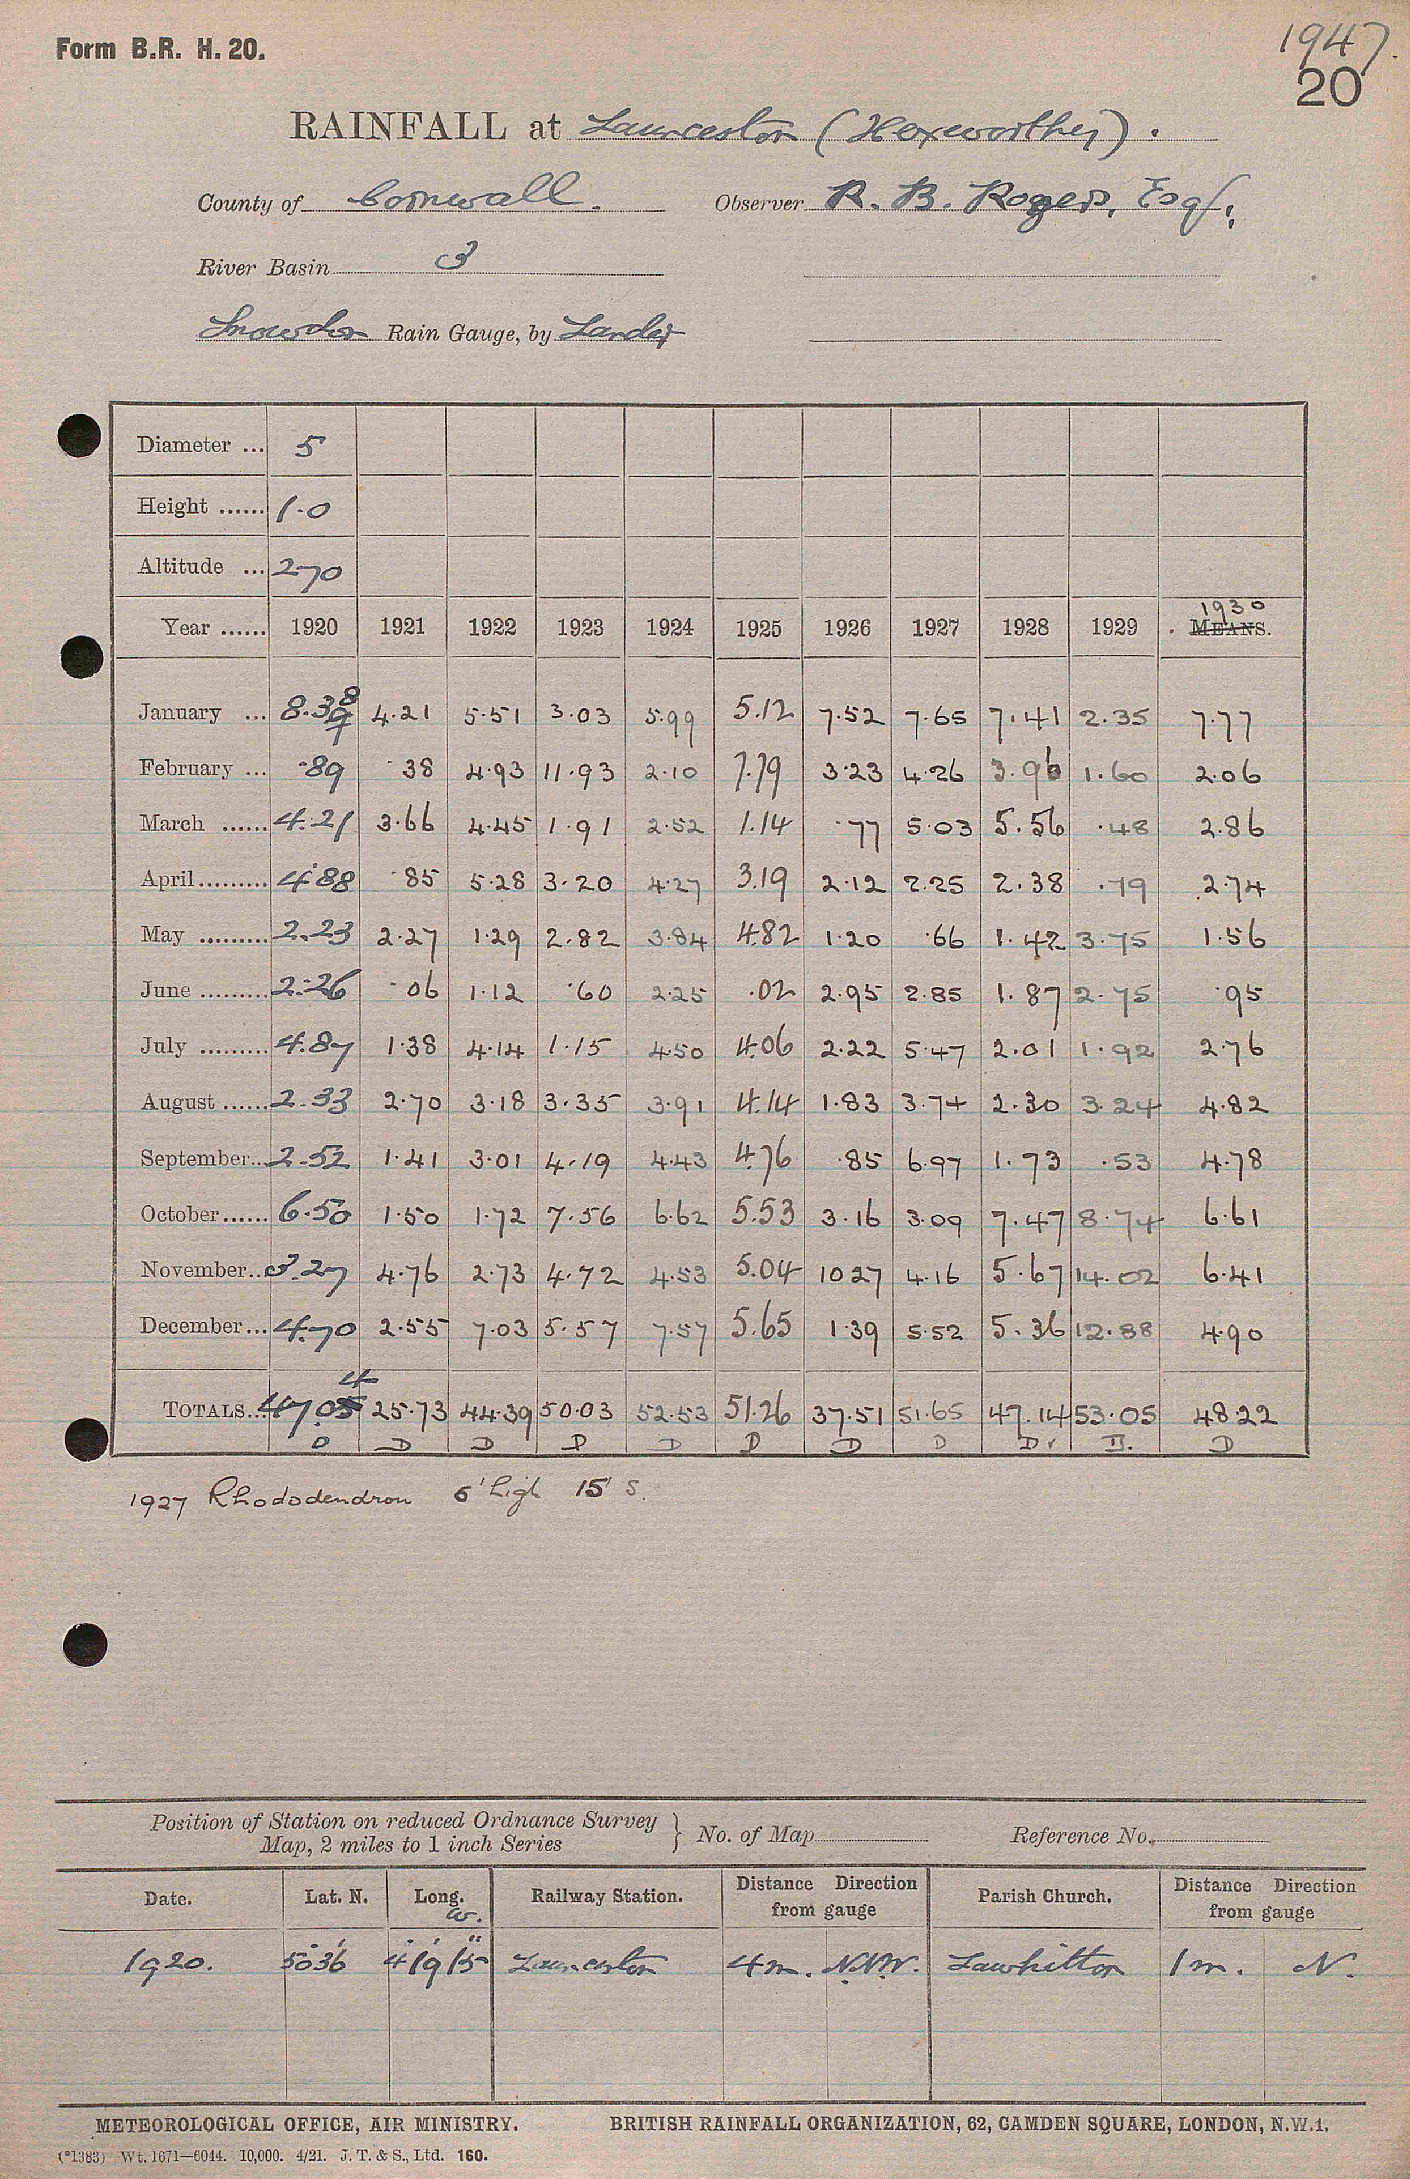 Form B.R. H. 20.
1947
20
RAINFALL at Launceston (Hexworthy).
County of Cornwall. Observer R. B. Rogers, Esq.,
River Basin 3
Snowdon Rain Gauge, by Lander
Diameter ... 5
Height ...... 1.0
Altitude ... 270
Year ...... 1920 1921 1922 1923 1924 1925 1926 1927 1928 1929 1930 MEANS.
January ... 8.38 4.21 5.51 3.03 5.99 5.12 7.52 7.65 7.41 2.35 7.77
February ... .89 .38 4.93 11.93 2.10 7.79 3.23 4.26 3.96 1.60 2.06
March ...... 4.21 3.66 4.45 1.91 2.52 1.14 .77 5.03 5.56 .48 2.86
April ......... 4.88 .85 5.28 3.20 4.27 3.19 2.12 2.25 2.38 .79 2.74
May ......... 2.23 2.27 1.29 2.82 3.84 4.82 1.20 .66 1.42 3.75 1.56
June ......... 2.26 .06 1.12 .60 2.25 .02 2.95 2.85 1.87 2.75 .95
July ......... 4.87 1.38 4.14 1.15 4.50 4.06 2.22 5.47 2.01 1.92 2.76
August ...... 2.33 2.70 3.18 3.35 3.91 4.14 1.83 3.74 2.30 3.24 4.82
September... 2.52 1.41 3.01 4.19 4.43 4.76 .85 6.97 1.73 .53 4.78
October...... 6.50 1.50 1.72 7.56 6.62 5.53 3.16 3.09 7.47 8.74 6.61
November... 3.27 4.76 2.73 4.72 4.53 5.04 10 27 4.16 5.67 14.02 6.41
December... 4.70 2.55 7.03 5.57 7.57 5.65 1.39 5.52 5.36 12.88 4.90
TOTALS... 47.04 25.73 44.39 50.03 52.53 51.26 37.51 51.65 47.14 53.05 48 22
D D D D D D D D D D
1927 Rhododendron 6' high 15' S.
Position of Station on reduced Ordnance Survey Map, 2 miles to 1 inch Series } No. of Map Reference No.
Date. Lat. N. Long. W. Railway Station. Distance Direction from gauge Parish Church. Distance Direction from gauge
1920. 50° 36' 4° 19' 15" Launceston 4m. NNW. Lawhitton 1 m. N.
METEOROLOGICAL OFFICE, AIR MINISTRY. BRITISH RAINFALL ORGANIZATION, 62, CAMDEN SQUARE, LONDON, N.W.1.
(*1383) Wt. 1671—6044. 10,000. 4/21. J. T. & S., Ltd. 160.